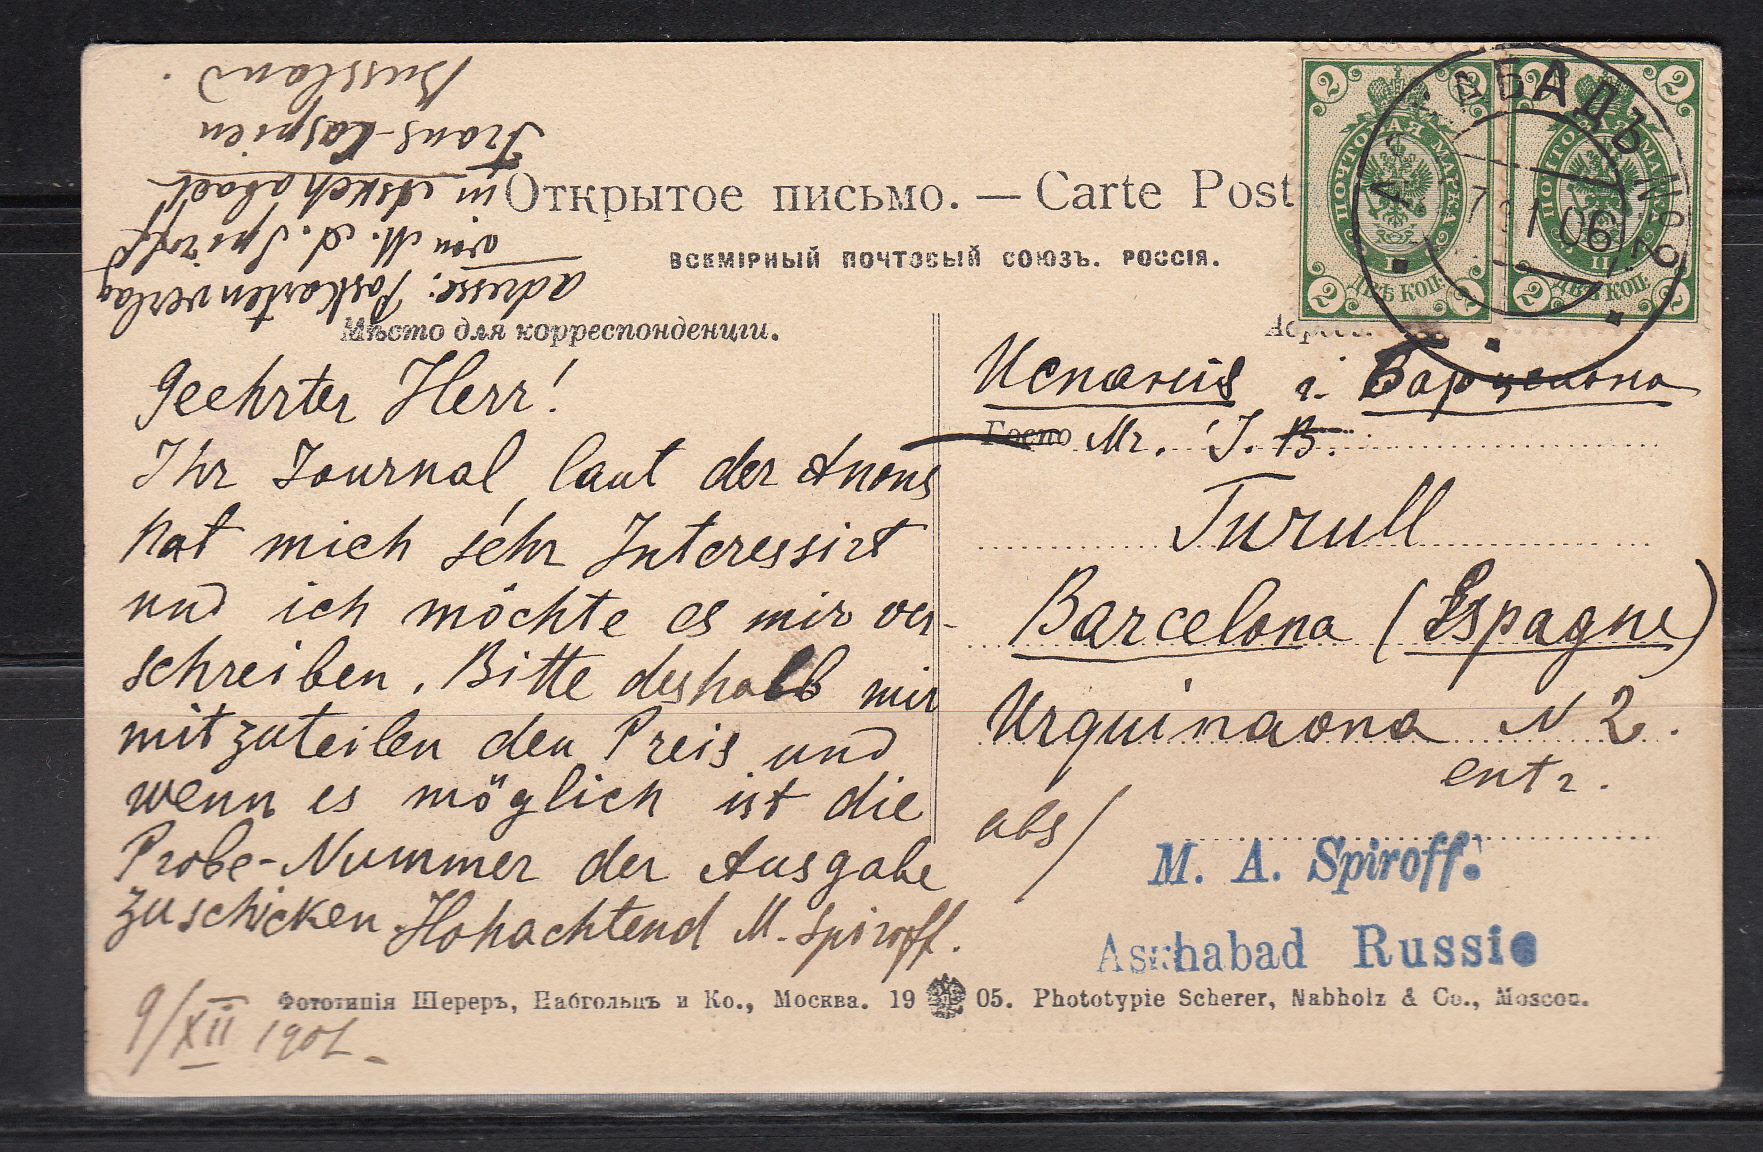 Открытое письмо. — Carte Post
ВСЕМІРНЫЙ ПОЧТОВЫЙ СОЮЗЪ. РОССІЯ.
adresse: Postkartenverlag
von M. A. Spiroff
in Askchabad
Trans-Caspien
Russland.
Мѣсто для корреспонденціи.
Geehrter Herr!
Ihr Journal, laut der Anons
hat mich sehr Interessirt
und ich möchte es mir ver-
schreiben. Bitte deshalb mir
mitzuteilen den Preis und
wenn es möglich ist die
Probe-Nummer der Ausgabe
zuschicken. Hohachtend M. Spiroff.
9/XII
ПОЧТОВАЯ МАРКА
2 2 2 2
ДВѢ КОП.
ПОЧТОВАЯ МАРКА
2 2 2 2
ДВѢ КОП.
АСХАБАДЪ
06
Испанія г. Барцелона
Госпо Mr. J. B.
Turull
Barcelona (Espagne)
Urquinaona N 2.
entr.
abs/
M. A. Spiroff.
Askhabad Russie
Фототипія Шереръ, Набгольцъ и Ко., Москва. 19 05. Phototypie Scherer, Nabholz & Co., Moscou.